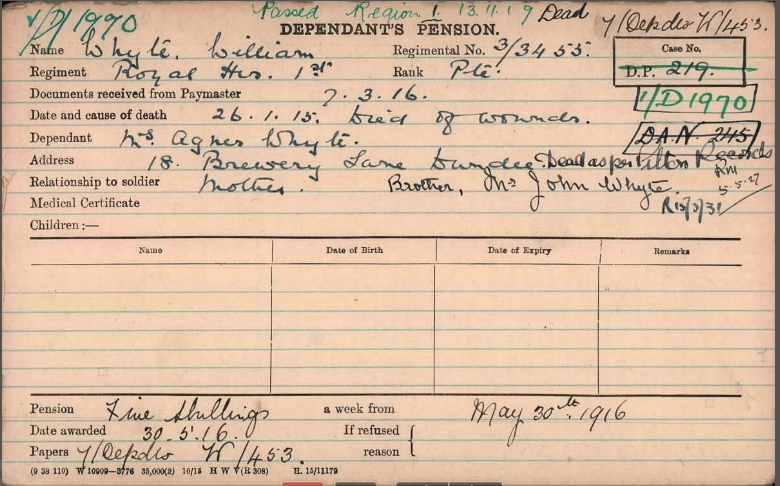 1/D 1970 Passed Region 1. 13.11.19 Dead 7/Depdts W/453.
DEPENDANT'S PENSION.
Name Whyte. William Regimental No. 3/3455. Case No.
Regiment Royal Hrs. 1st Rank Pte. D.P. 219.
Documents received from Paymaster 7.3.16. 1/D1970
Date and cause of death 26.1.15. Died of wounds.
Dependant Mrs Agnes Whyte. D.A.N. 245
Address 18. Brewery Lane Dundee. Dead as per Records
Relationship to soldier Mother. Brother, Mr John Whyte. RM 5-5-27
Medical Certificate R15/5/31
Children :—
Name Date of Birth Date of Expiry Remarks
Pension Five Shillings a week from May 30th 1916
Date awarded 30.5.16. If refused {
Papers 7/Depdts W/453. reason
(9 38 110) W 10909—3776 35,000(2) 10/15 H W V (R 308) H. 15/11179